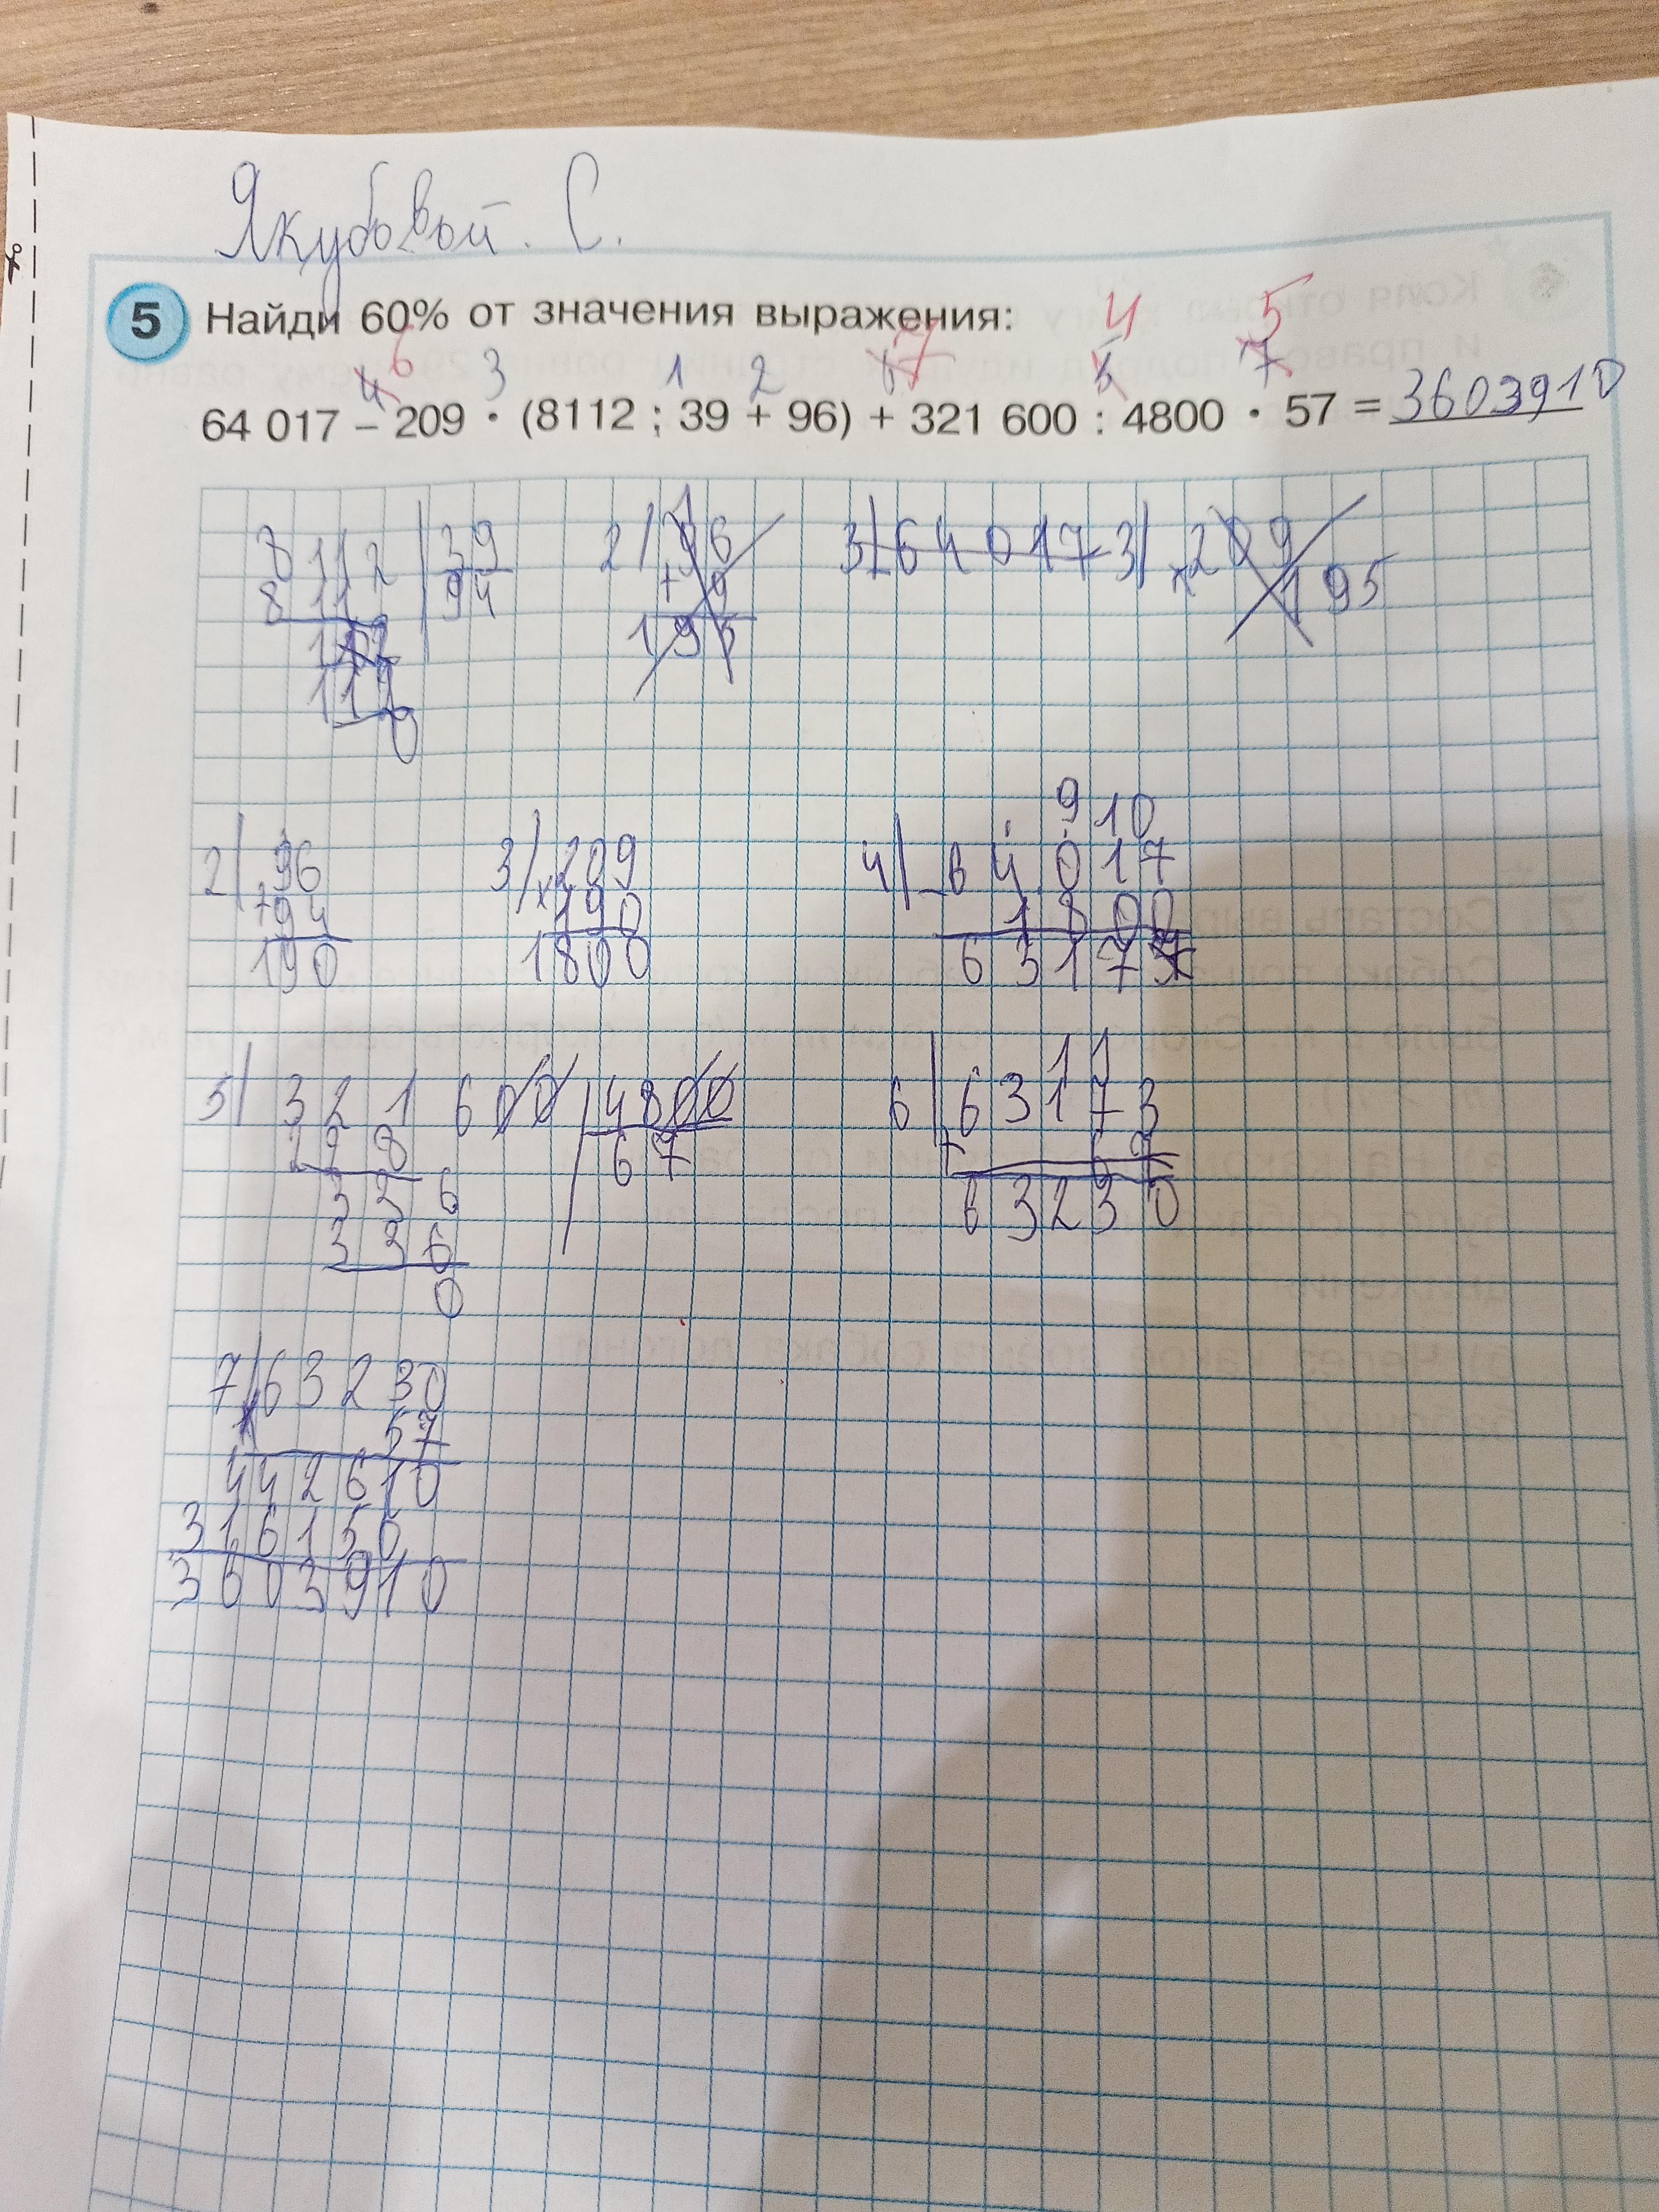 Якубовой. С.
5 Найди 60% от значения выражения:
6 4 5
4 3 1 2 6 7 5 7
64 017 – 209 · (8112 : 39 + 96) + 321 600 : 4800 · 57 = 3603910
8112 39
811 94
112
0
2) 96
+ 9
195
3) 64017
3) × 209
195
2) 96
+ 94
190
3) × 209
190
1800
9 10
4) – 64017
1800
63173
5) 321600 4800
228 67
336
336
0
11
6) 63173
+ 67
63230
7) 63230
× 57
442610
316150
3603910